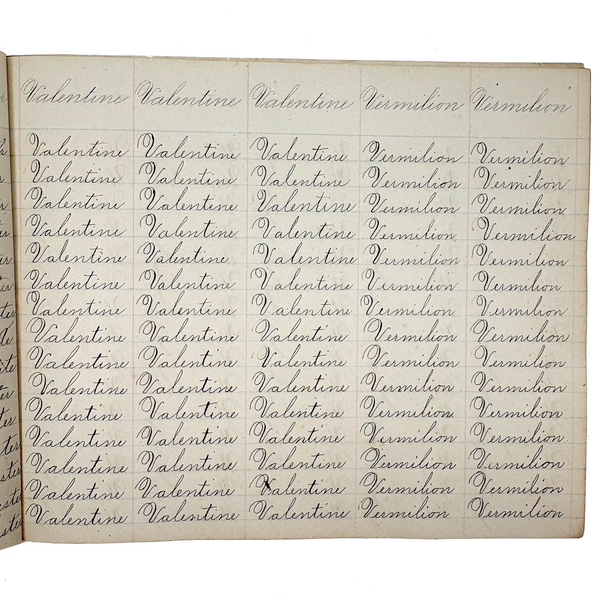 Valentine Valentine Valentine Vermilion Vermilion
Valentine Valentine Valentine Vermilion Vermilion
Valentine Valentine Valentine Vermilion Vermilion
Valentine Valentine Valentine Vermilion Vermilion
Valentine Valentine Valentine Vermilion Vermilion
Valentine Valentine Valentine Vermilion Vermilion
Valentine Valentine Valentine Vermilion Vermilion
Valentine Valentine Valentine Vermilion Vermilion
Valentine Valentine Valentine Vermilion Vermilion
Valentine Valentine Valentine Vermilion Vermilion
Valentine Valentine Valentine Vermilion Vermilion
Valentine Valentine Valentine Vermilion Vermilion
Valentine Valentine Valentine Vermilion Vermilion
Valentine Valentine Valentine Vermilion Vermilion
Valentine Valentine Valentine Vermilion Vermilion
Valentine Valentine Valentine Vermilion Vermilion